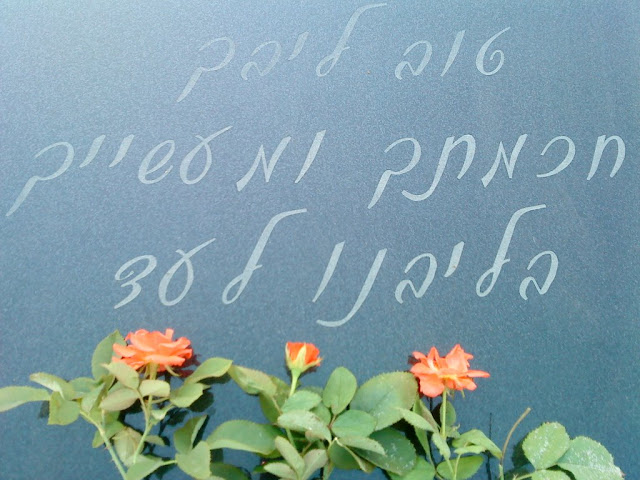 טוב ליבך
חכמתך ומעשייך
בליבנו לעד